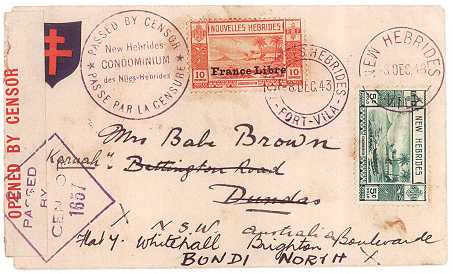 PASSED BY CENSOR
New Hebrides
CONDOMINIUM
des Nlles-Hébrides
PASSE PAR LA CENSURE
NOUVELLES HÉBRIDES
France Libre
10 10
HEBRIDES
DEC.43
PORT-VILA
NEW HEBRIDES
DEC.43
NEW HEBRIDES
OPENED BY CENSOR
PASSED
BY
CENSOR
1657
Mrs Babe Brown
"Karuah"
Bettington Road
Dundas
N.S.W. Australia
Flat 7. Whitehall Brighton Boulevarde
BONDI NORTH